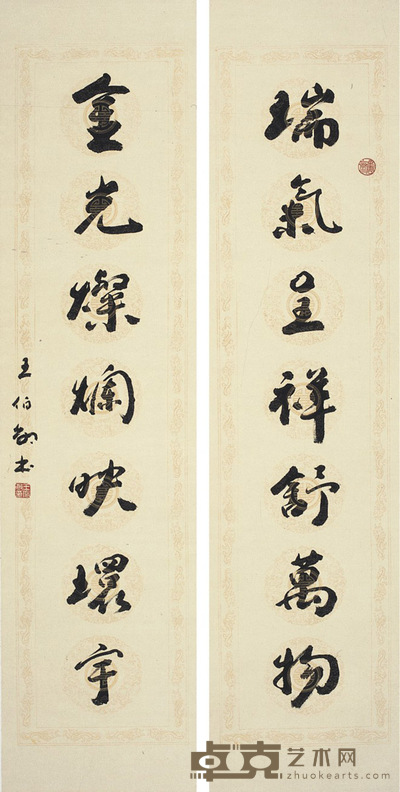 瑞氣呈祥舒萬物
金光燦爛映環宇
王伯敏书
卓克艺术网
zhuokearts.com